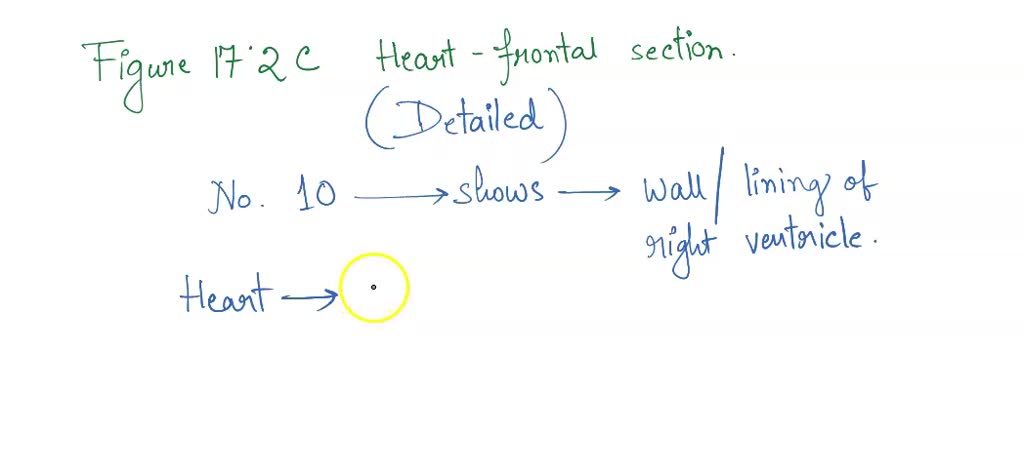 Figure 17.2 C Heart - frontal section.
(Detailed)
No. 10 → shows → wall / lining of
right ventricle.
Heart →